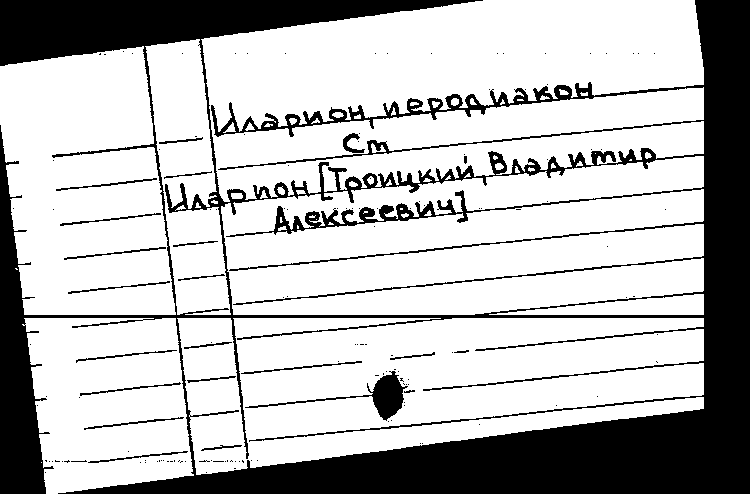 Иларион, иеродиакон
Ст
Иларион [Троицкий, Владимир
Алексеевич]